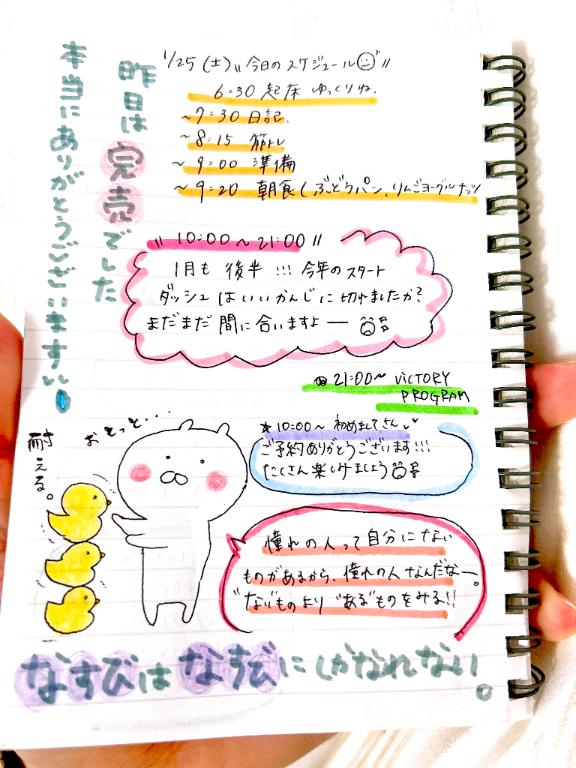 本当にありがとうございます!!
昨日は完売でした
1/25(土) "今日のスケジュール"
6:30 起床 ゆっくりね.
~7:30 日記.
~8:15 筋トレ
~9:00 準備
~9:20 朝食(ぶどうパン.りんごヨーグルナッツ
"10:00~21:00"
1月も 後半!!! 今年のスタート
ダッシュはいいかんじに切れましたか?
まだまだ間に合いますよー
21:00~ VICTORY
PROGRAM
★10:00~ 初めましてさん
ご予約ありがとうございます!!!
たくさん楽しみましょう
おっとっと...
耐える。
憧れの人って自分にない
ものがあるから、憧れの人なんだなー。
"ない"ものより"ある"ものをみる!!
なすびはなすびにしかなれない。